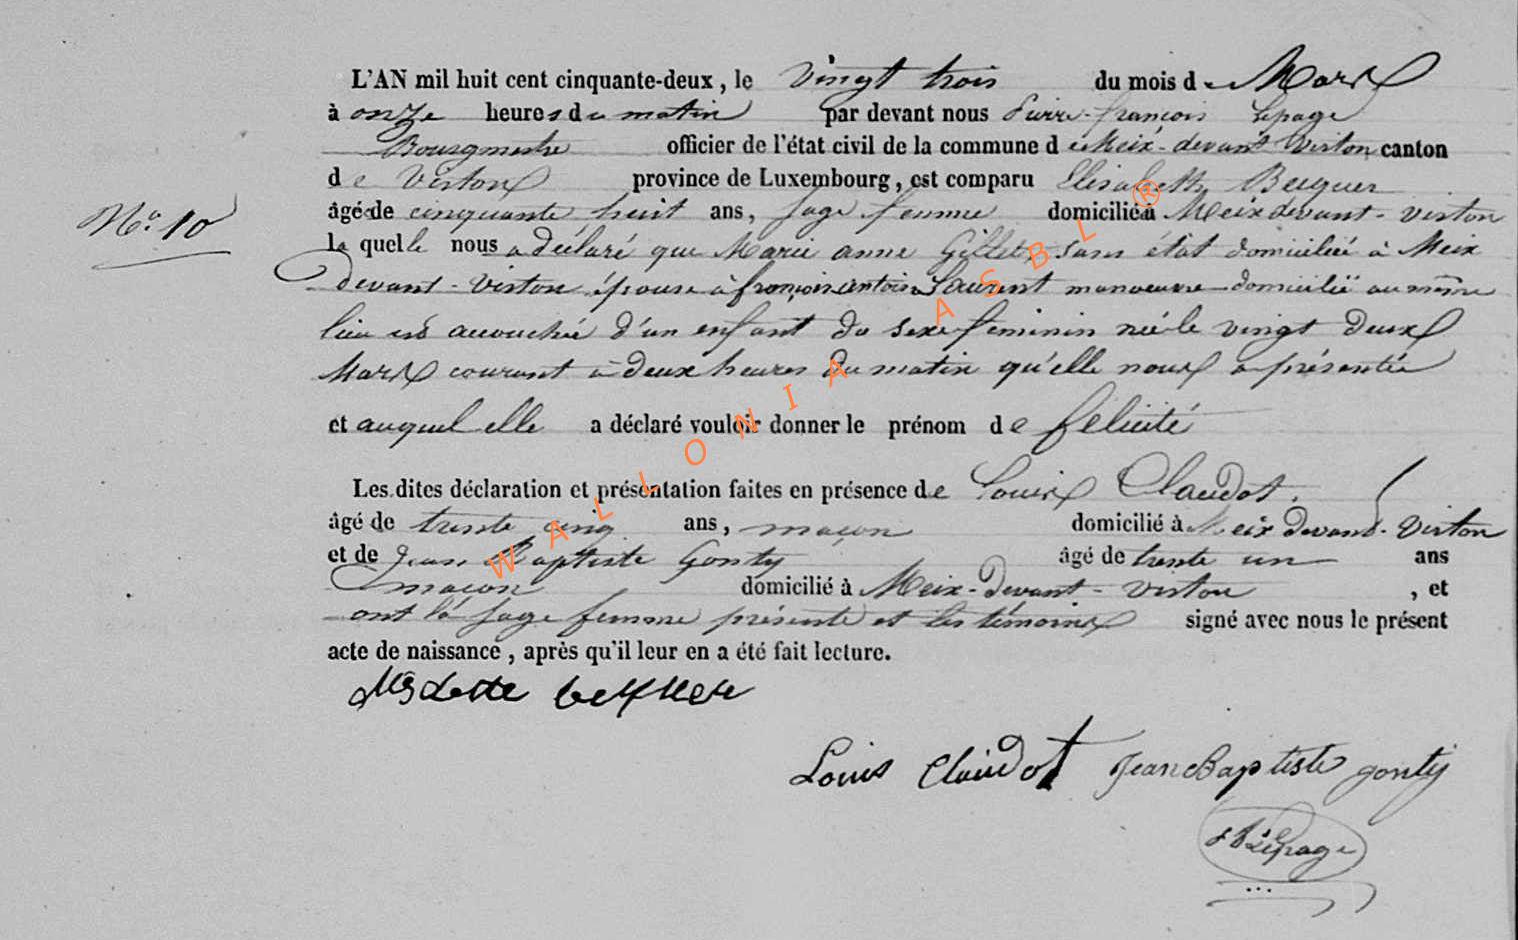 L'AN mil huit cent cinquante-deux, le vingt trois du mois de Mars
à onze heures du matin par devant nous Pierre-françois Lepage
Bourgmestre officier de l'état civil de la commune de Meix-devant Virton canton
de Virton province de Luxembourg, est comparu Elisabeth Becquer
âgée de cinquante huit ans, sage femme domiciliée à Meix devant-virton
N.o 10
laquelle nous a déclaré que Marie anne Gillet, sans état domiciliée à Meix
devant-Virton épouse à françois antoine Laurent manoeuvre domicilié au même
lieu est accouchée d'un enfant du sexe féminin née le vingt deux
Mars courant à deux heures du matin qu'elle nous a présentée
et auquel elle a déclaré vouloir donner le prénom de félicité
Les dites déclaration et présentation faites en présence de Louis Claudot,
âgé de trente cinq ans, maçon domicilié à Meix devant-Virton
et de Jean Baptiste Gonty âgé de trente un ans
maçon domicilié à Meix-Devant-virton, et
ont la sage femme présente et les témoins signé avec nous le présent
acte de naissance, après qu'il leur en a été fait lecture.
Louis Claudot Jean Baptiste gonty
Lepage
WALLONIA ASBL ®